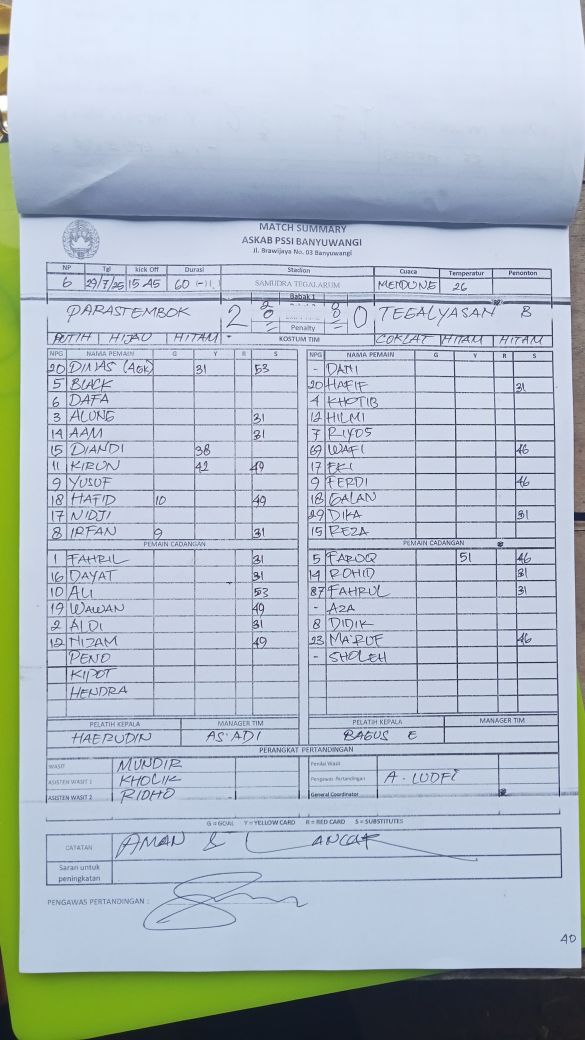 MATCH SUMMARY
ASKAB PSSI BANYUWANGI
Jl. Brawijaya No. 03 Banyuwangi
NP Tgl kick Off Durasi Stadion Cuaca Temperatur Penonton
6 29/7/25 15.45 60 SAMUDRA TEGALARUM MENDUNG 26
Babak 1
PARASTEMBOK 2 2 0 0 TEGALYASAN B
0 0
Penalty
PUTIH HIJAU HITAM KOSTUM TIM COKLAT HITAM HITAM
NPG NAMA PEMAIN G Y R S NPG NAMA PEMAIN G Y R S
20 DIMAS (AGK) 31 53 - DANI
5 BLACK 20 HAFIF 31
6 DAFA 4 KHOTIB
3 ALUNG 31 12 HILMI
14 AAM 31 7 RIYOS
15 DIANDI 38 69 WAFI 46
11 KIRUN 42 49 17 EKI
9 YUSUF 9 FERDI 46
18 HAFID 10 49 18 GALAN
17 NIDJI 29 DIKA 31
8 IRFAN 9 31 15 REZA
PEMAIN CADANGAN PEMAIN CADANGAN
1 FAHRIL 31 5 FAROQ 51 46
16 DAYAT 31 14 ROHID 31
10 ALI 53 87 FAHRUL 31
19 WAWAN 49 - AZA
2 ALDI 31 8 DIDIK
12 NIZAM 49 23 MA'RUF 46
PENO - SHOLEH
KIPOT
HENDRA
PELATIH KEPALA MANAGER TIM PELATIH KEPALA MANAGER TIM
HAERUDIN AS'ADI BAGUS E
PERANGKAT PERTANDINGAN
WASIT MUNDIR Penilai Wasit
ASISTEN WASIT 1 KHOLIK Pengawas Pertandingan A. LUDFI
ASISTEN WASIT 2 RIDHO General Coordinator
G = GOAL Y = YELLOW CARD R = RED CARD S = SUBSTITUTES
CATATAN AMAN & LANCAR
Saran untuk
peningkatan
PENGAWAS PERTANDINGAN :
40